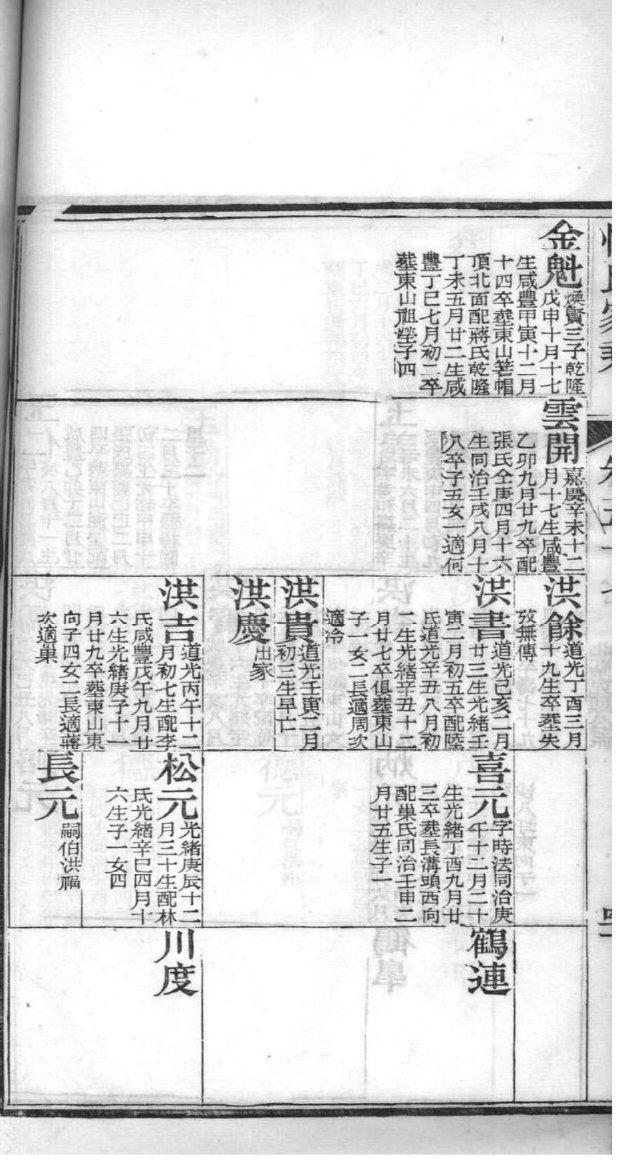 金魁
煥賢三子乾隆
戊申十月十七
生咸豐甲寅十二月
十四卒塟東山箬帽
頂北面配蔣氏乾隆
丁未五月廿二生咸
豐丁巳七月初二卒
塟東山祖塋子四
雲開
嘉慶辛未十二
月十七生咸豐
乙卯九月廿九卒配
張氏仝庚四月十六
生同治壬戌八月十
八卒子五女一適何
洪餘
道光丁酉三月
十九生卒塟失
攷無傳
洪書
道光己亥二月
廿三生光緒壬
寅二月初五卒配陸
氏道光辛丑八月初
二生光緒辛丑十二
月廿七卒俱塟東山
子一女二長適周次
適冷
洪貴
道光壬寅二月
初三生早亡
洪慶
出家
洪吉
道光丙午十二
月初七生配李
氏咸豐戊午九月廿
六生光緒庚子十一
月廿九卒塟東山東
向子四女二長適蔣
次適巢
喜元
字時法同治庚
午十二月二十
生光緒丁酉九月廿
三卒塟長溝頭西向
配巢氏同治壬申二
月廿五生子一
松元
光緒庚辰十二
月三十生配林
氏光緒辛巳四月十
六生子一女四
長元
嗣伯洪福
鶴連
川度